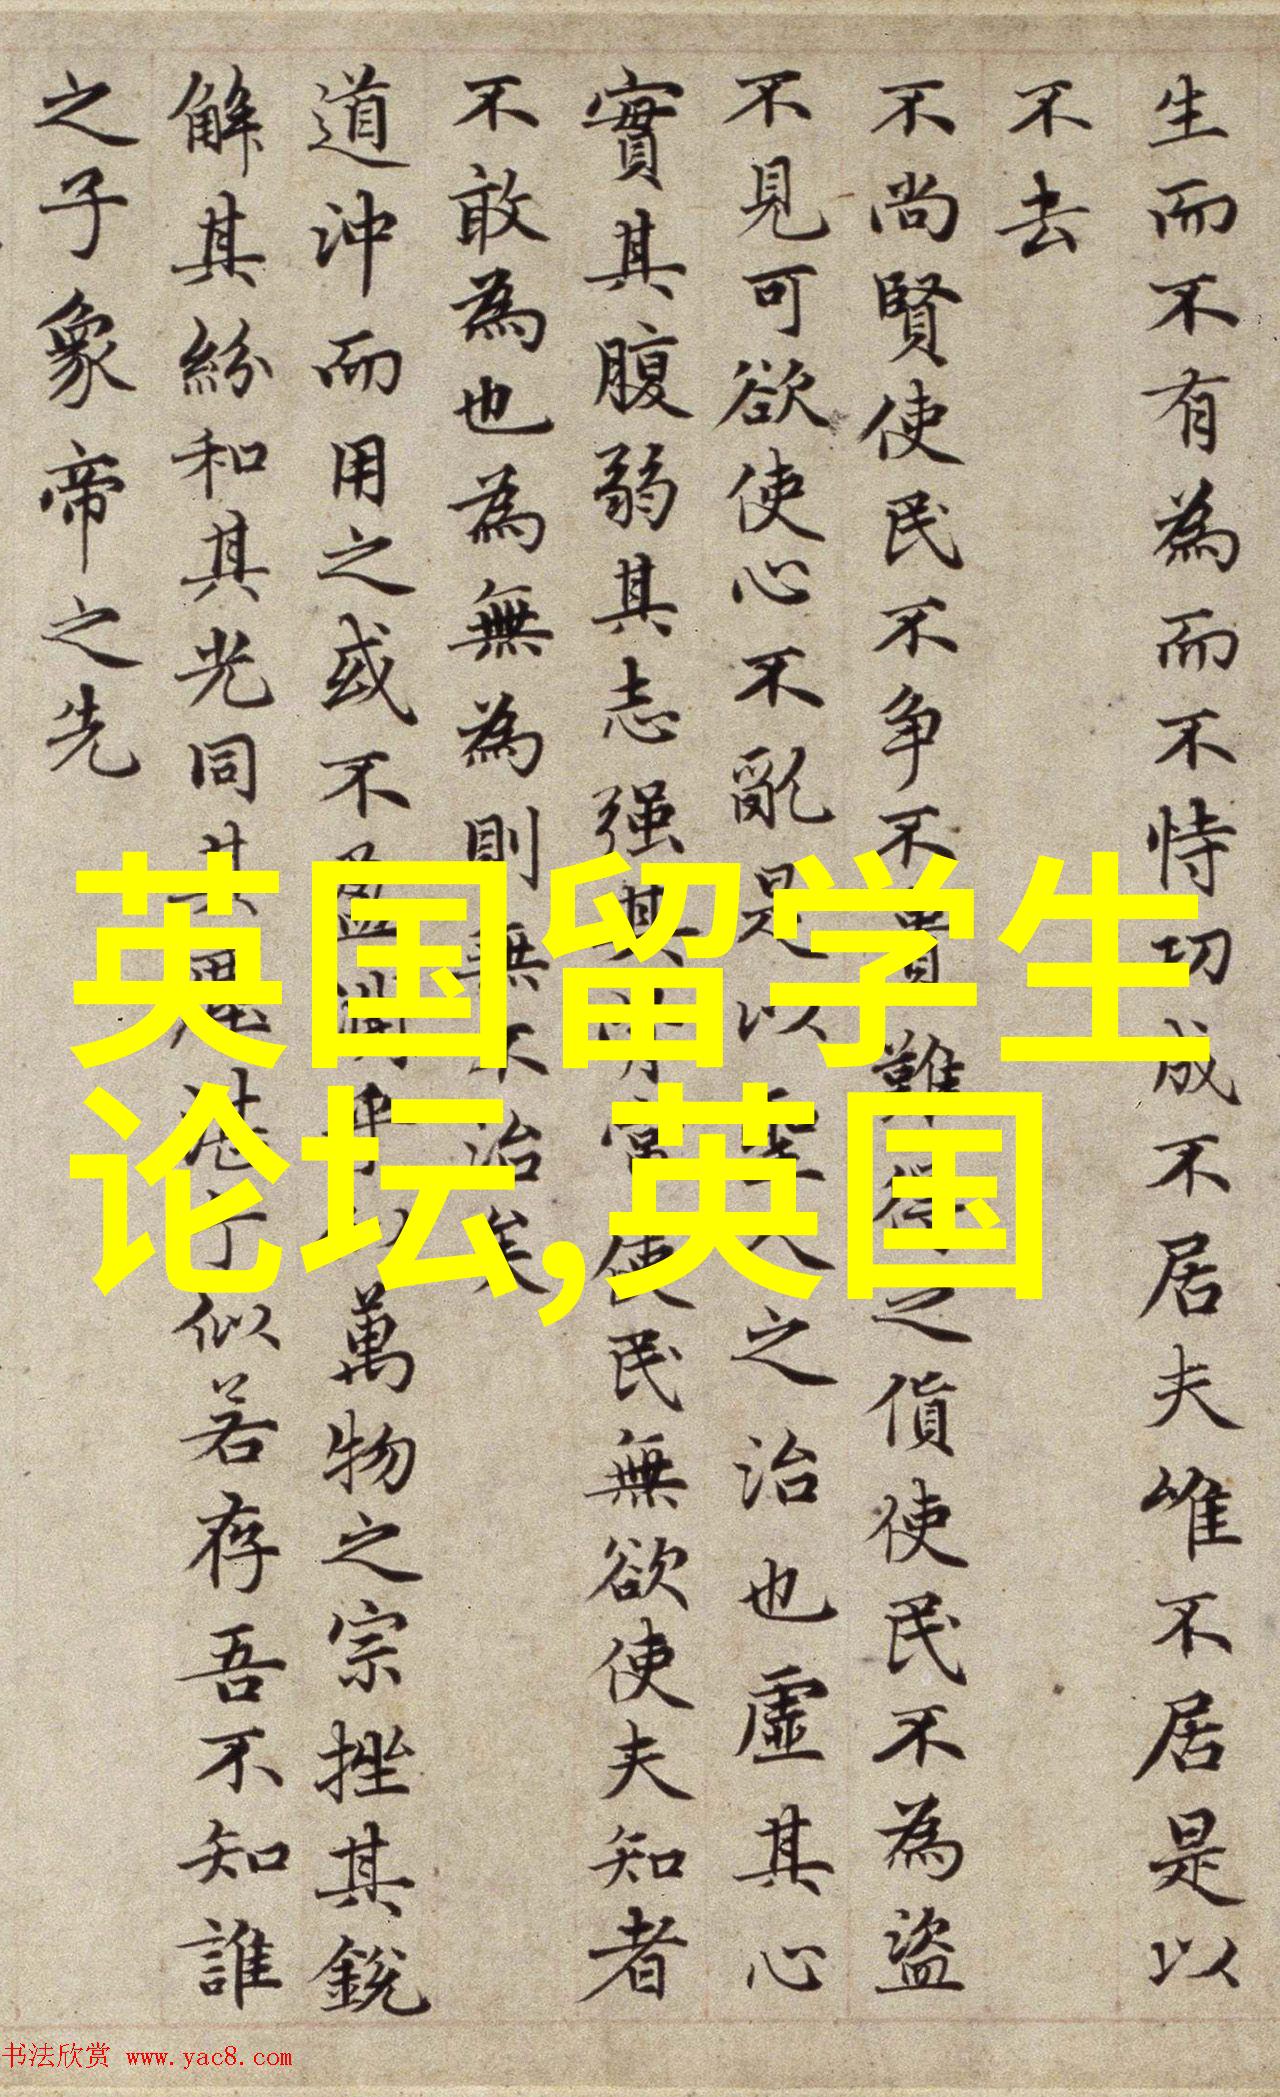 生而不有為而不恃功成不居夫唯不居是以
不去
不尚賢使民不争不貴難得之貨使民不為盜
不見可欲使心不亂是以聖人之治也虛其心
實其腹弱其志强其骨常使民無欲使夫知者
不敢為也為無為則無不治矣
道沖而用之或不盈淵乎似萬物之宗挫其銳
解其紛和其光同其塵湛兮似若存吾不知誰
之子象帝之先
英国留学生
论坛,英国
书法欣赏 www.yac8.com